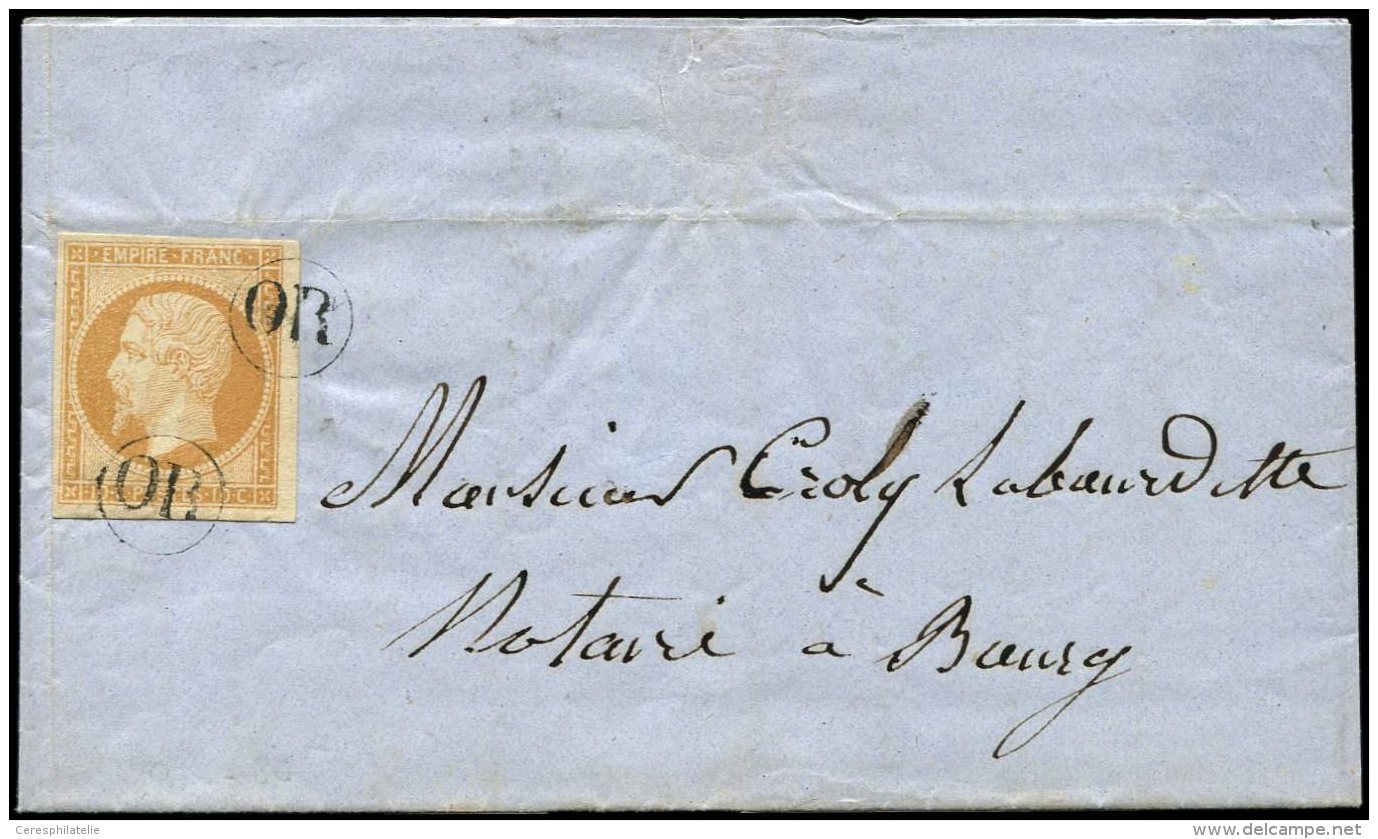 EMPIRE·FRANC·
OR
OR
10·C·
Monsieur Croly Labourdette
Notaire à Bourg
Ceresphilatelie
www.delcampe.net